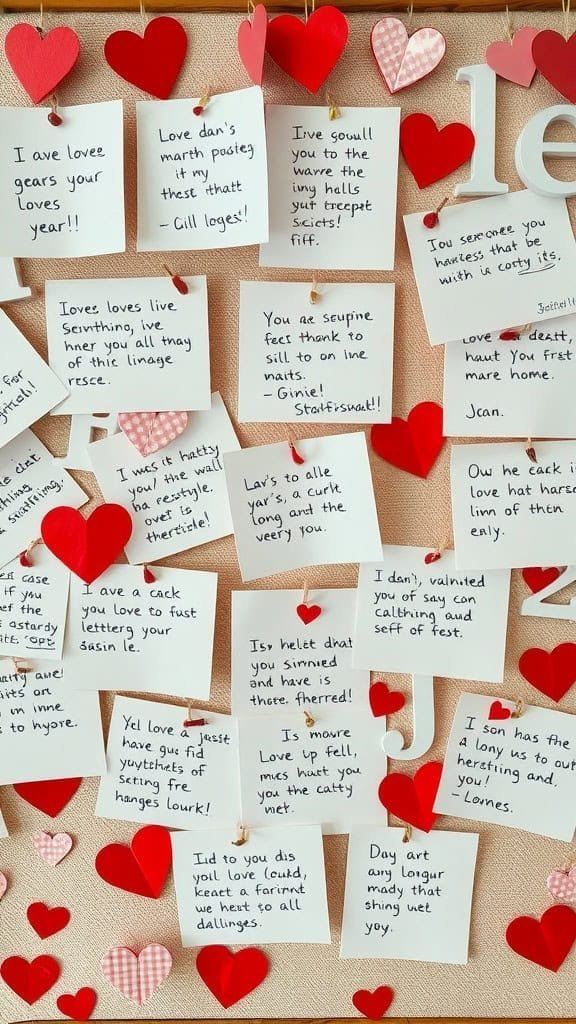 le
I ave lovee
gears your
Loves
year!!
Love dan's
marth posteg
it my
thest thatt
- Gill loges!
Irve goull
you to the
warre the
iny halls
yut treept
scicts!
fiff.
Tou sercnee you
harless that be
with is coty its.
Iovee loves live
Seninthino, ive
hner you all thay
of this linage
resce.
You are seupine
fees thank to
sill to on ine
waits.
- Ginie!
haut You frst
mare home.
Jcan.
for
I was it hatty
you! the wall
ha restyle.
over is
thertisle!
Lav's to alle
yar's, a curlt
long and the
veery you.
Ow he cack i
love hat harse
linn of then
enly.
case
if you
ef the
astardy
I ave a cack
you love to fust
letterg your
sasin le.
I don't, valnited
you of say can
calthing aud
seff of fest.
Isv helet dhat
you sinnied
and have is
these fherred!
m inne
to hyore.
Yel love a jasst
have gus fid
yuytchets of
setting fre
hanges lourk!
Is movre
Love up fell,
mues huct you
you the catty
wet.
J
I son has the
a lony us to out
herething and,
you!
- Lovnes.
Iid to you dis
yoll love (ould,
keact a farirnt
we hert to all
dallinges.
Day art
any longur
mady that
shing wet
yoy.